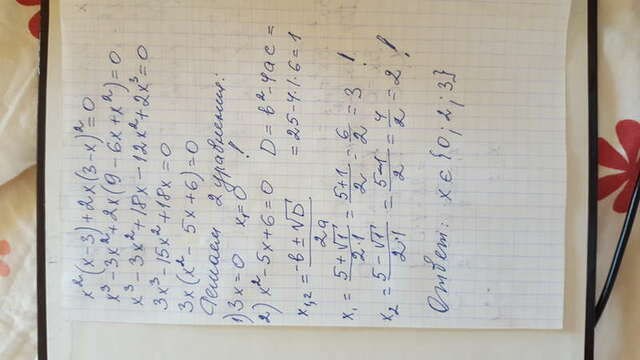 x²(x-3)+2x(3-x)²=0
x³-3x²+2x(9-6x+x²)=0
x³-3x²+18x-12x²+2x³=0
3x³-15x²+18x=0
3x(x²-5x+6)=0
Решаем 2 уравнения:
1) 3x=0 x₁=0!
2) x²-5x+6=0 D=b²-4ac=
=25-4·1·6=1
x₁,₂=(-b±√D)/2a
x₁=(5+√1)/(2·1)=(5+1)/2=6/2=3!
x₂=(5-√1)/(2·1)=(5-1)/2=4/2=2!
Ответ: x∈{0;2;3}